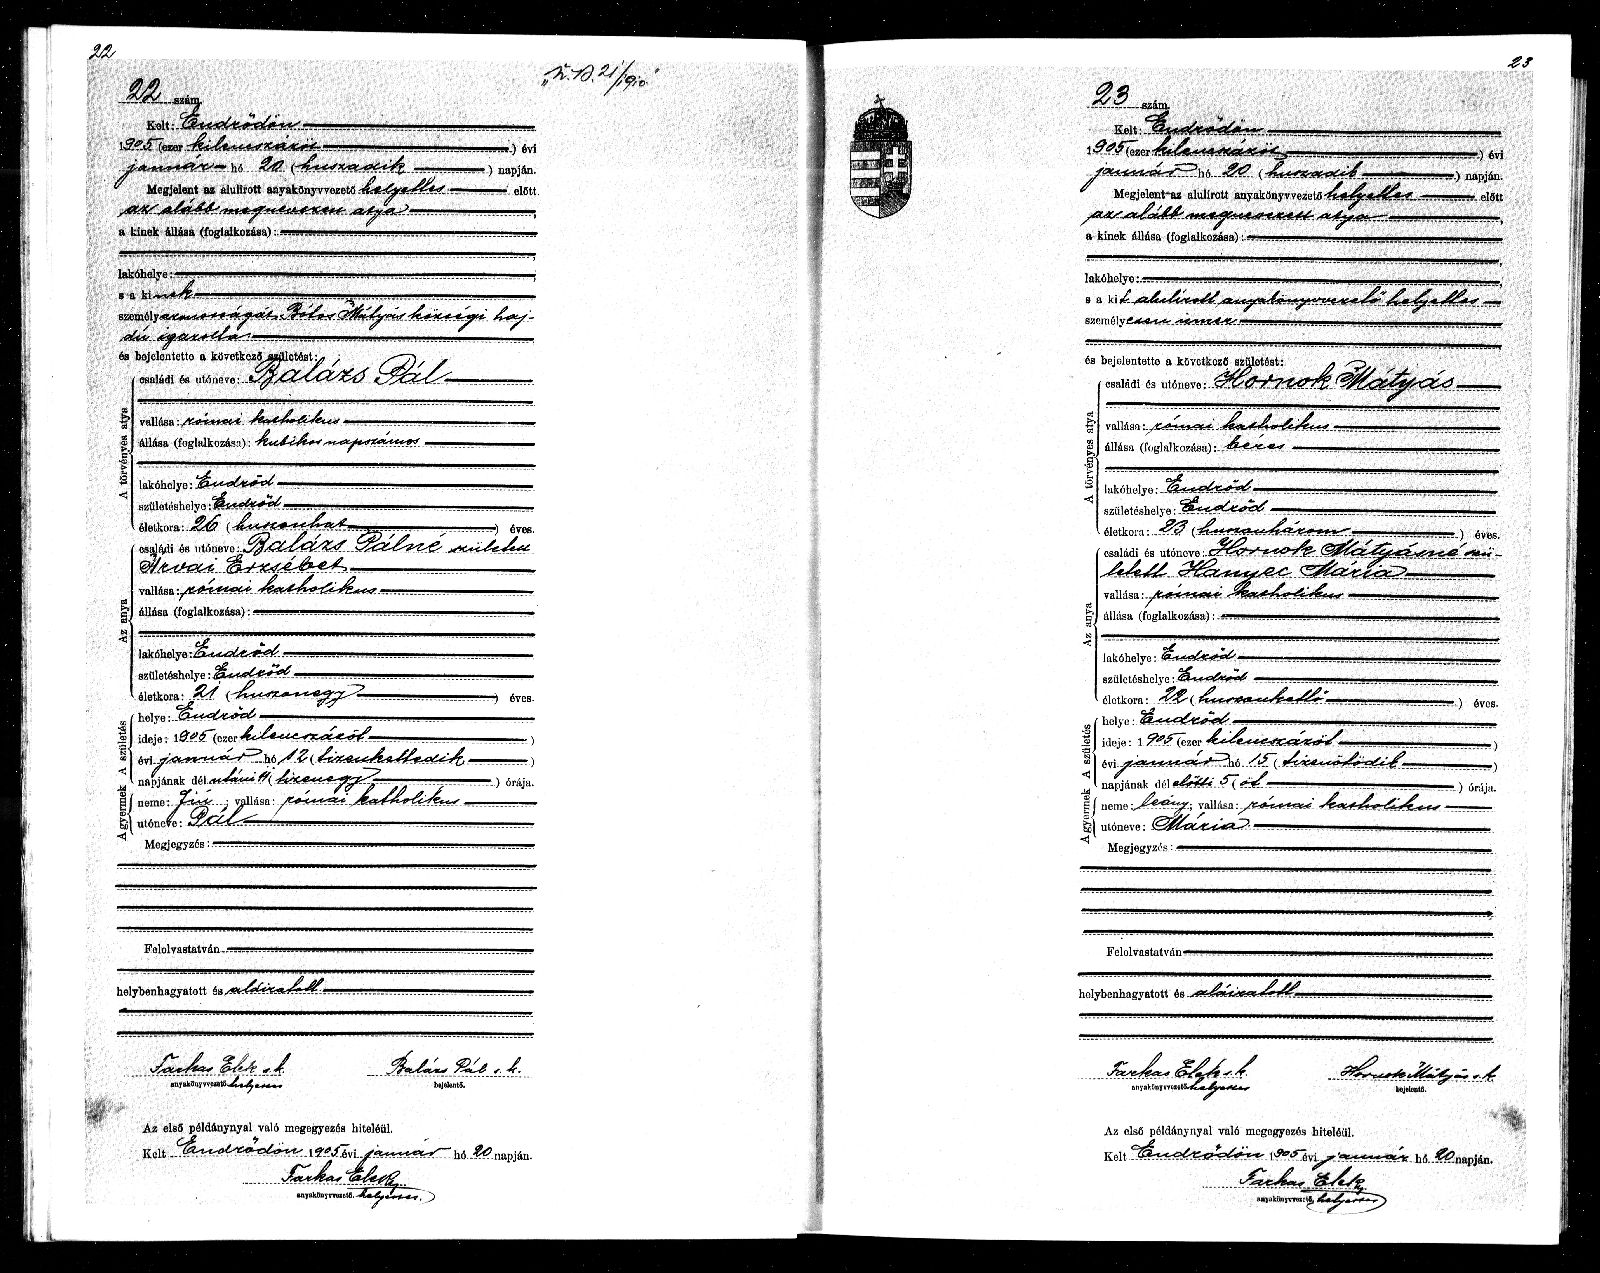 22
22 szám.
Kelt: Endrődön
1905 (ezer kilencszázöt ) évi
január hó 20 (huszadik ) napján.
Megjelent az alulirott anyakönyvvezető helyettes előtt
az alább megnevezett atya
a kinek állása (foglalkozása):
lakóhelye:
s a kinek
személyazonosságát Mátyás községi haj-
dú igazolta
és bejelentette a következő születést:
A törvényes atya
családi és utóneve: Balázs Pál
vallása: római katholikus
állása (foglalkozása): kubikos napszámos
lakóhelye: Endrőd
születéshelye: Endrőd
életkora: 26 (huszonhat ) éves.
Az anya
családi és utóneve: Balázs Pálné született
Árvai Erzsébet
vallása: római katholikus
állása (foglalkozása):
lakóhelye: Endrőd
születéshelye: Endrőd
életkora: 21 (huszonegy ) éves.
A születés
helye: Endrőd
ideje: 1905 (ezer kilencszázöt )
évi január hó 12 (tizenkettedik )
napjának dél utáni 11 (tizenegy ) órája.
A gyermek
neme: fiú; vallása: római katholikus
utóneve: Pál
Megjegyzés:
Felolvastatván
helybenhagyatott és aláiratott
Farkas Elek s. k. Balázs Pál s. k.
anyakönyvvezető helyettes bejelentő.
Az első példánynyal való megegyezés hiteléül.
Kelt Endrődön 1905 évi január hó 20 napján.
Farkas Elek
anyakönyvvezető. helyettes.
23
23 szám
Kelt: Endrődön
1905 (ezer kilencszázöt ) évi
január hó 20 (huszadik ) napján.
Megjelent az alulirott anyakönyvvezető helyettes előtt
az alább megnevezett atya
a kinek állása (foglalkozása):
lakóhelye:
s a kit alulirott anyakönyvvezető helyettes
személyesen ismer
és bejelentette a következő születést:
A törvényes atya
családi és utóneve: Hornok Mátyás
vallása: római katholikus
állása (foglalkozása): beres
lakóhelye: Endrőd
születéshelye: Endrőd
életkora: 23 (huszonhárom ) éves.
Az anya
családi és utóneve: Hornok Mátyásné szü-
letett Hanyec Mária
vallása: római katholikus
állása (foglalkozása):
lakóhelye: Endrőd
születéshelye: Endrőd
életkora: 22 (huszonkettő ) éves.
A születés
helye: Endrőd
ideje: 1905 (ezer kilencszázöt )
évi január hó 15 (tizenötödik )
napjának dél előtti 5 (öt ) órája.
A gyermek
neme: leány; vallása: római katholikus
utóneve: Mária
Megjegyzés:
Felolvastatván
helybenhagyatott és aláiratott
Farkas Elek s. k. Hornok Mátyás s. k.
anyakönyvvezető. helyettes bejelentő.
Az első példánynyal való megegyezés hiteléül.
Kelt Endrődön 1905 évi január hó 20 napján.
Farkas Elek
anyakönyvvezető. helyettes